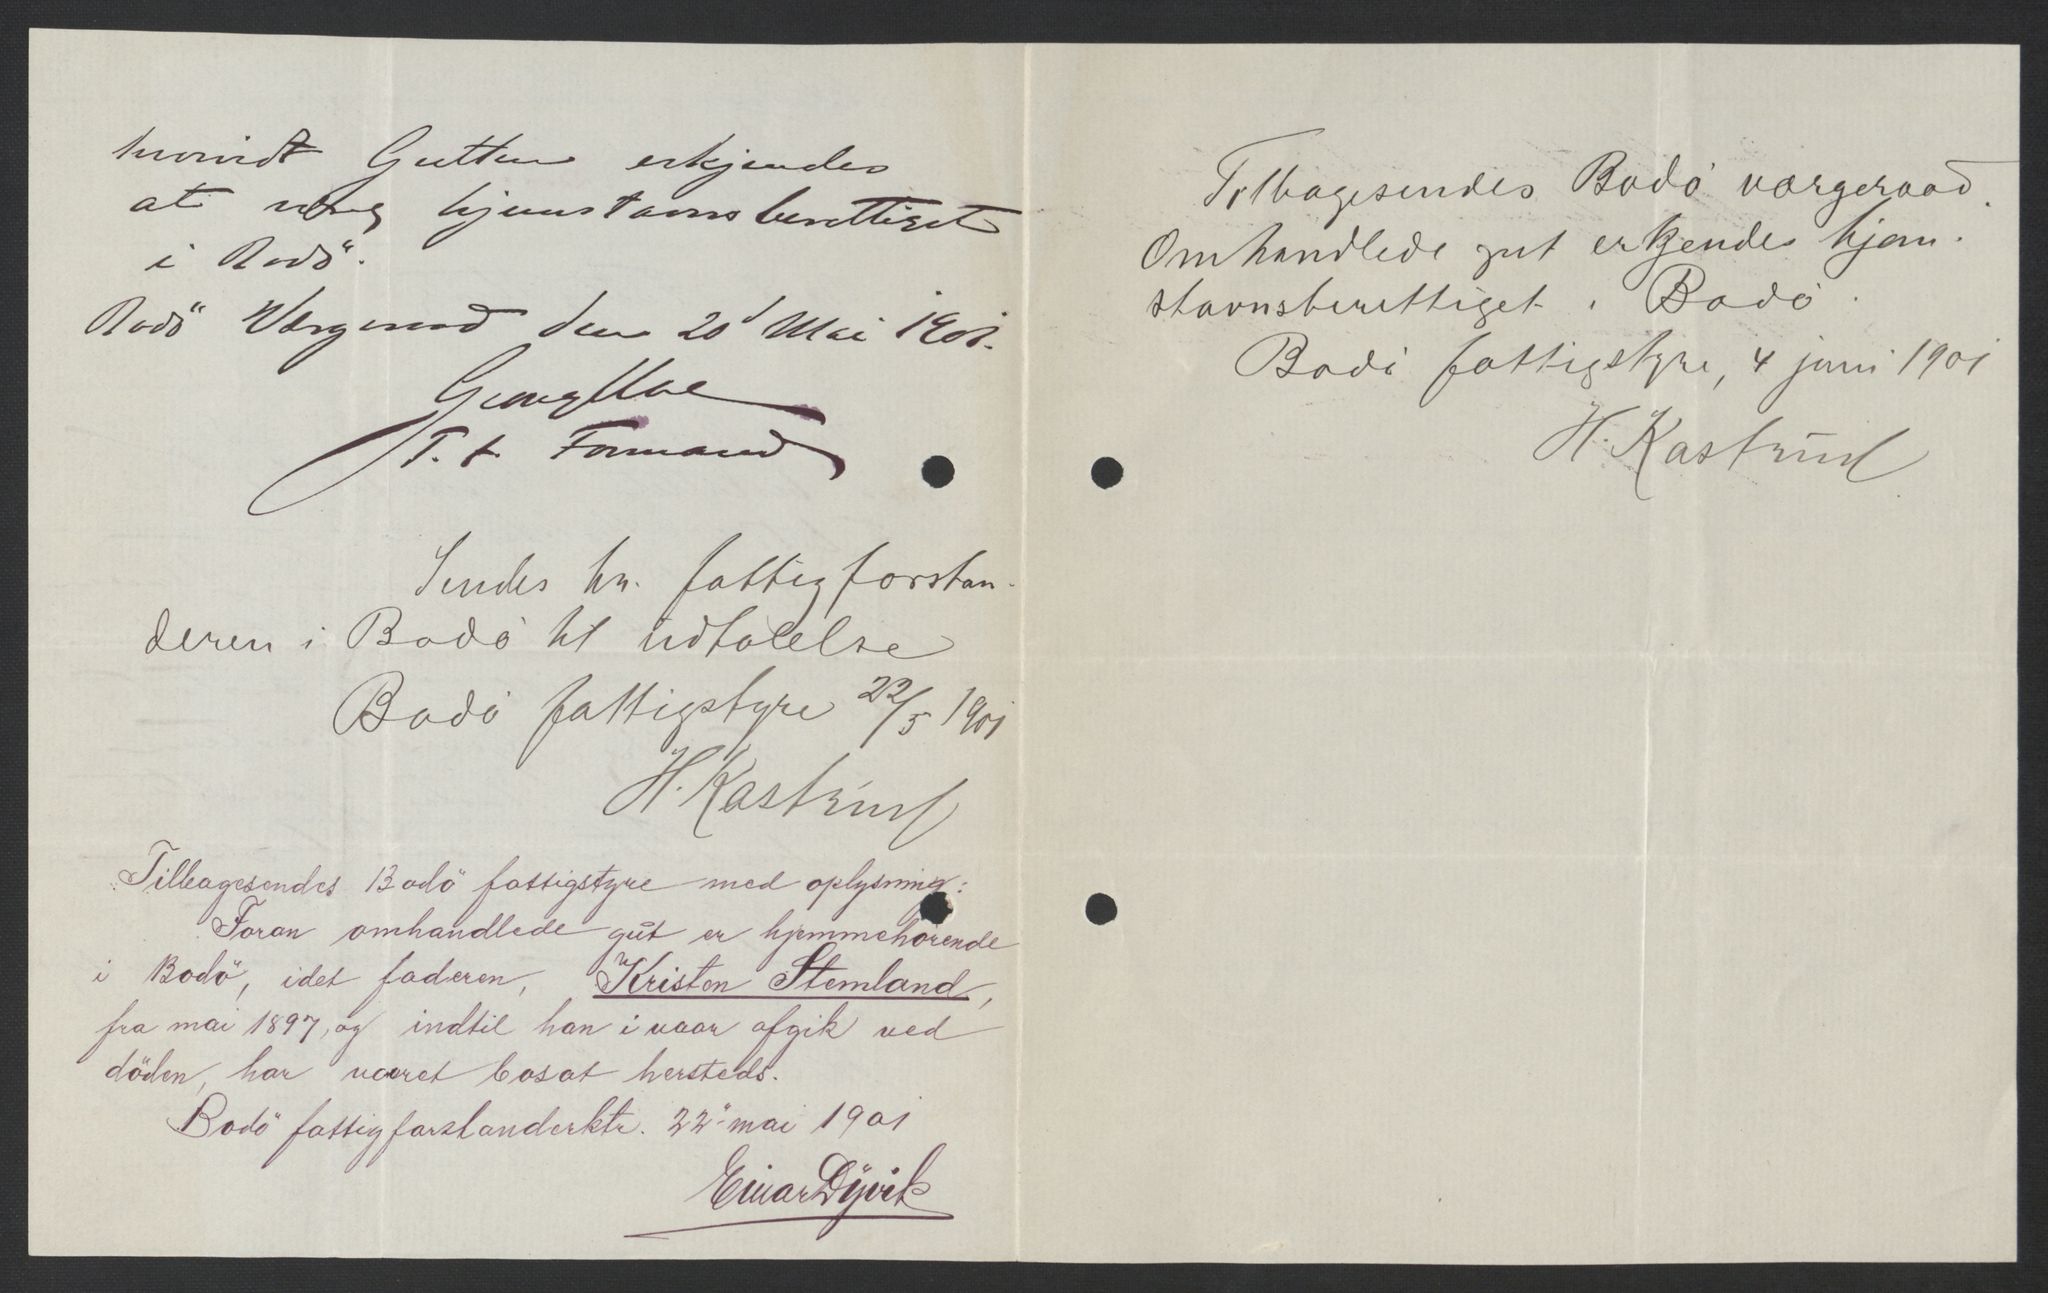 hvorvidt Gutten erkjendes
at være hjemstavnsberettiget
i Bodö.
Bodö Værgeraad den 20d Mai 1901.
T. f. Formand
Sendes hr. fattigforstan-
deren i Bodø til udtalelse
Bodø fattigstyre 22/5 1901
H. Kastrud
Tilbagesendes Bodö fattigstyre med oplysning:
Foran omhandlede gut er hjemmehørende
i Bodö, idet faderen, Kristen Stemland,
fra mai 1897, og indtil han i vaar afgik ved
döden, har været bosat hersteds.
Bodö fattigforstanderktr. 22 mai 1901
Einar Dyvik
Tilbagesendes Bodø værgeraad.
Omhandlede gut erkjendes hjem-
stavnsberettiget i Bodø.
Bodø fattigstyre, 4 juni 1901
H. Kastrud